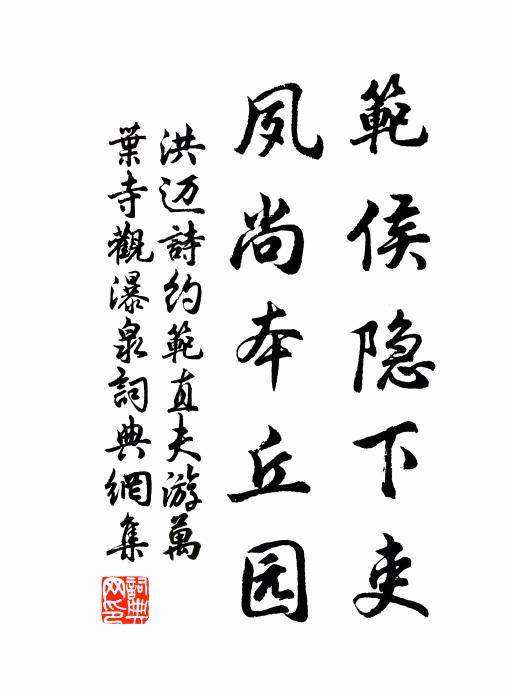 範侯隐下吏
夙尚本丘园
洪迈詩约範直夫游萬
葉寺觀瀑泉詞典網集
詞典网印